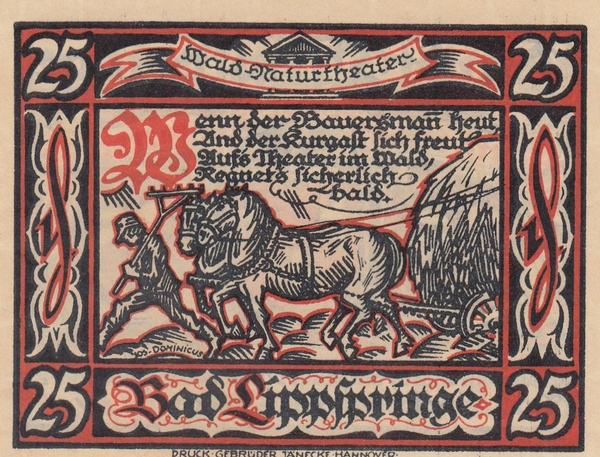 25
25
Wald-Naturtheater.
Wenn der Bauersmañ heut,
Und der Kurgast sich freut
Aufs Theater im Wald,
Regnet's sicherlich
bald.
JOS. DOMINICUS
25
25
Bad Lippspringe
DRUCK·GEBRÜDER JÄNECKE·HANNOVER·